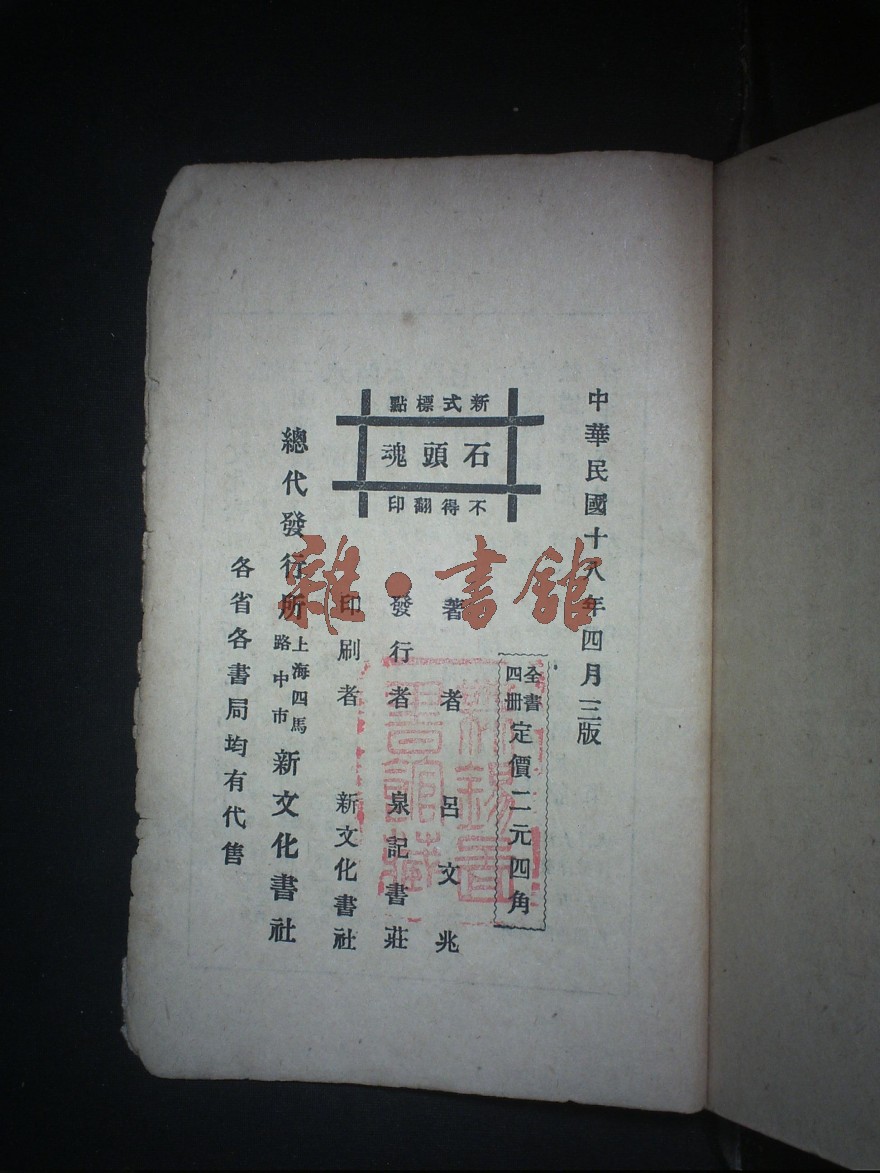 中華民國十八年四月三版
全書四册定價二元四角
新式標點
石頭魂
不得翻印
著者 呂文兆
發行者 泉記書莊
印刷者 新文化書社
總代發行所 上海四馬路中市 新文化書社
各省各書局均有代售
雜·書館